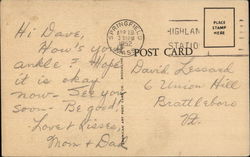 Hi Dave,
How's your
ankle? Hope
it is okay
now - See you
soon - Be good,
Love & Kisses,
Mom & Dad
SPRINGFIELD
APR 19
1952
HIGHLAN
STATIO
PLACE
STAMP
HERE
POST CARD
David Lessard
6 Union Hill
Brattleboro
Vt.